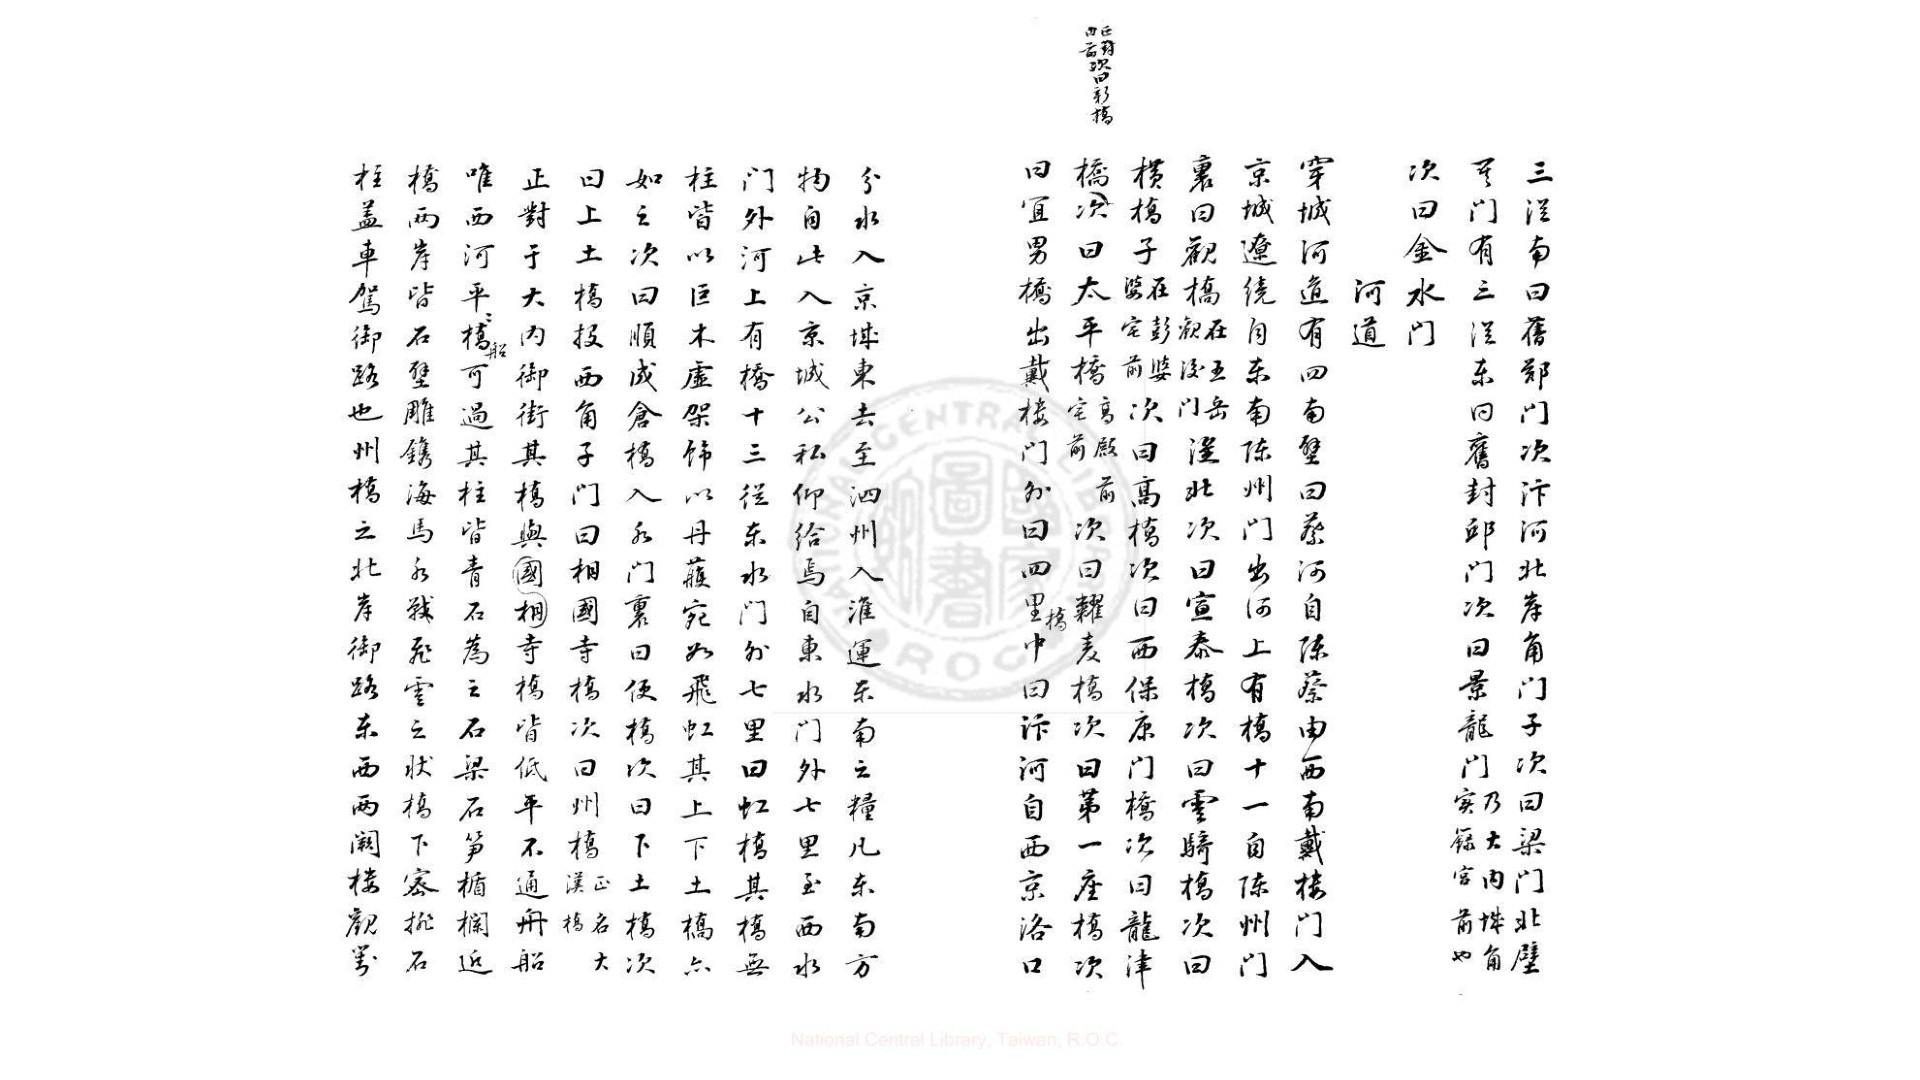 正對
内前次曰新橋
三從南曰舊鄭門次汴河北岸角門子次曰梁門北壁
其門有三從东曰舊封邱門次曰景龍門乃大内城角實籙宫前也
次曰金水門
河道
穿城河道有四南壁曰蔡河自陈蔡由西南戴楼門入
京城遼绕自东南陈州門出河上有橋十一自陈州門
裏曰觀橋在五岳觀後門從北次曰宣泰橋次曰雲騎橋次曰
横橋子在彭婆婆宅前次曰高橋次曰西保康門橋次曰龍津
橋次曰太平橋高殿前宅前次曰糶麦橋次曰第一座橋次
曰宜男橋出戴楼門外曰四里橋中曰汴河自西京洛口
分水入京城東去至泗州入淮運东南之糧凡东南方
物自此入京城公私仰给焉自東水門外七里至西水
門外河上有橋十三從东水門外七里曰虹橋其橋無
柱皆以巨木虚架饰以丹雘宛如飛虹其上下土橋亦
如之次曰順成倉橋入水門裏曰便橋次曰下土橋次
曰上土橋投西角子門曰相國寺橋次曰州橋正名大漢橋
正對于大内御街其橋與國相寺橋皆低平不通舟船
唯西河平船橋可過其柱皆青石為之石梁石笋楯欄近
橋兩岸皆石壁雕鐫海馬水戰飛雲之狀橋下密排石
柱盖車駕御路也州橋之北岸御路东西兩阙楼觀對
National Central Library, Taiwan, R.O.C.